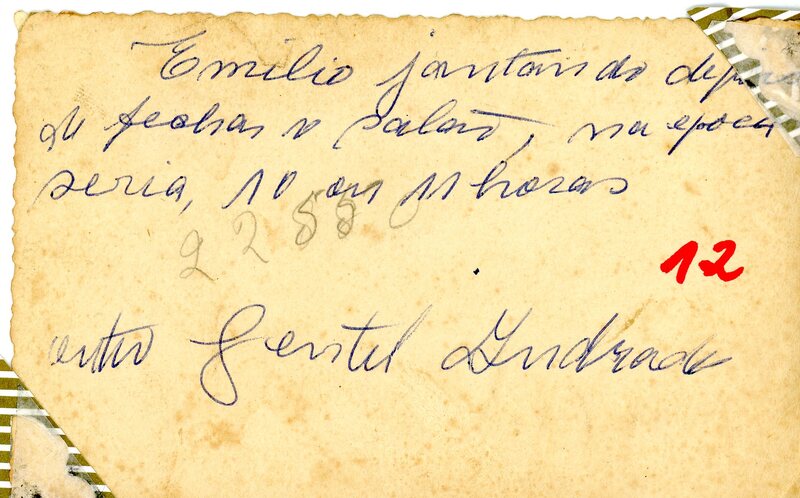 Emilio jantando depois
de fechar o salão, na epoca
seria, 10 ou 11 horas
2255
12
Gentil Andrade